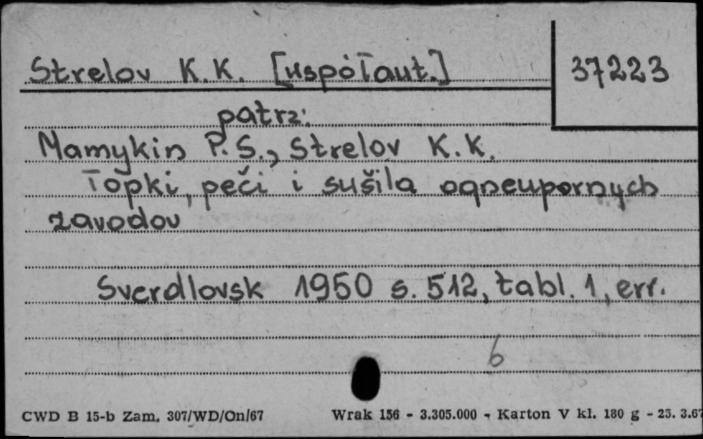 Strelov K.K. [współaut.] 37223
patrz:
Mamykin P.S., Strelov K.K.
Topki, peči i sušila ogneupornych
zavodov
Sverdlovsk 1950 s. 512, tabl. 1, err.
b
CWD B 15-b Zam. 307/WD/On/67 Wrak 156 - 3.305.000 - Karton V kl. 180 g - 23. 3.67